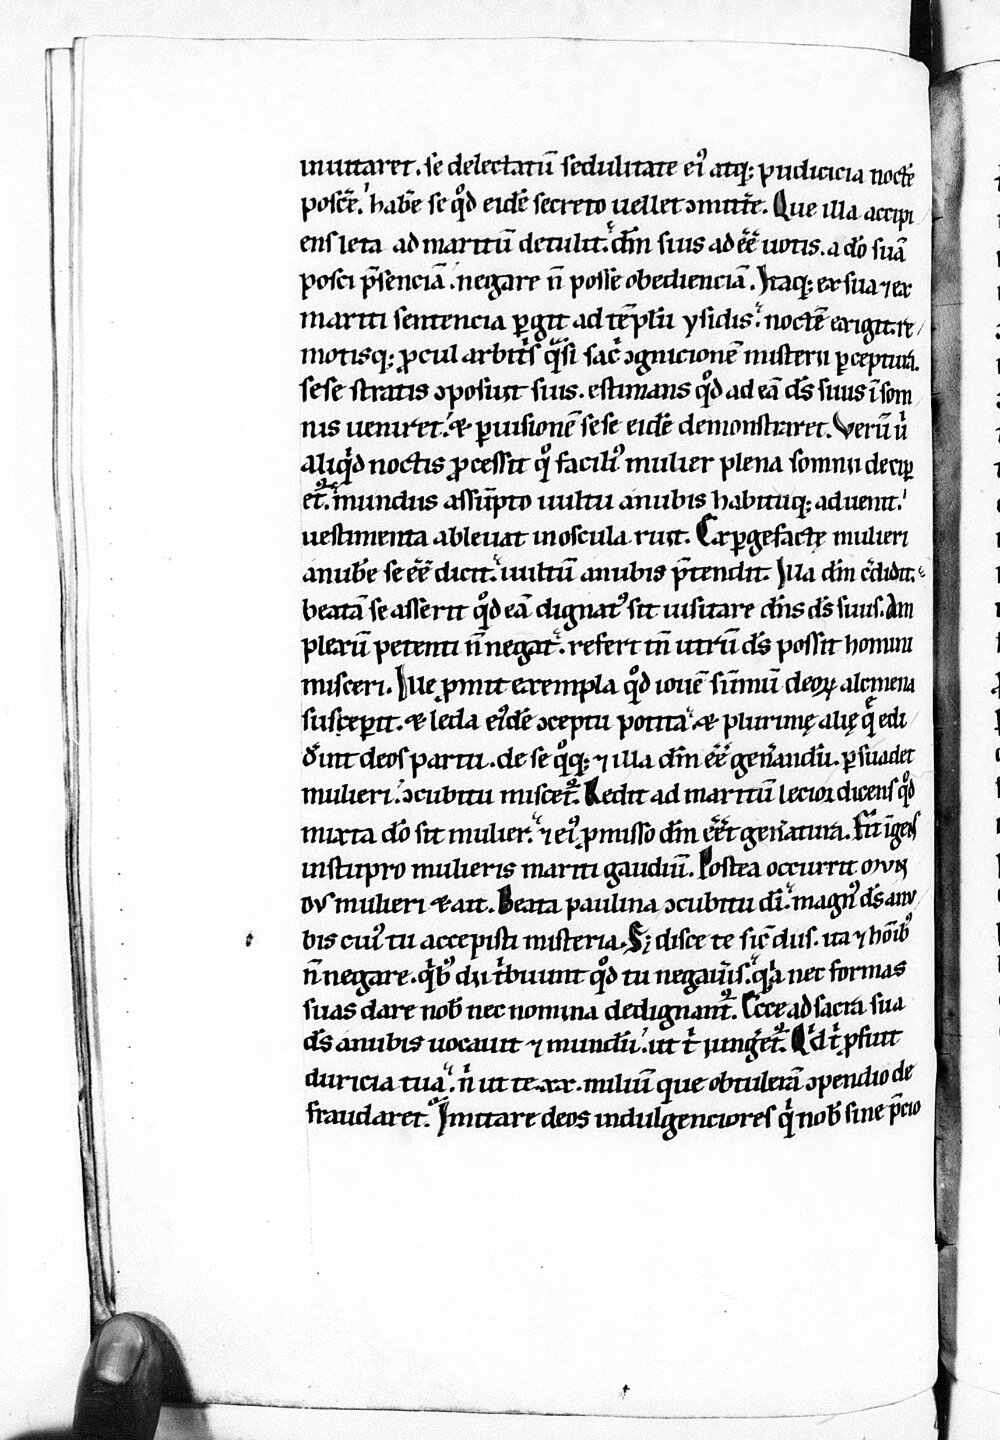 inuitaret. se delectatū sedulitate ei᷒ atq; pudicicia noctē
poscē. habe se qd̊ eidē secreto uellet ꝯmittē. Que illa accipi
ens leta ad maritū detulit. dm̄ suis adeē̄ uotis. a dō suā
posci p̄senciā. negare n̄ posse obedienciā. Itaq; ex sua ⁊ ex
mariti sentencia ꝑgit ad tēplū ysidis. noctē exigit. re
motisq; ꝓcul arbit̄s q̄si sac̄ ꝯgnicionē misterii ꝑceptura.
sese stratis ꝯposuit suis. estimans qd̊ ad eā ds̄ suus ī som
nis ueniret. & ꝑ uisionē sese eidē demonstraret. Verū u̍
aliq̍d noctis ꝓcessit q̊ facili᷒ mulier plena somnii decip
et᷑. mundus assūpto uultu anubis habituq; aduenit.
uestimenta ableuat in oscula ruit. Exꝑgefactę mulieri
anubē se eē̄ dicit. uultū anubis p̄tendit. Illa dm̄ c̄didit.
beatā se asserit qd̊ eā dignat᷒ sit uisitare dn̄s ds̄ suus. Am
plexū petenti n̄ negat. refert tn̄ utrū ds̄ possit homini
misceri. Ille ꝓmit exempla qd̊ iouē sūmū deoꝝ alcmena
susceꝑit. & leda ei᷒dē ꝯceptu potita. & plurimę alię q̄ edi
d̄int deos partu. de se q̊q; ⁊ illa dm̄ eē̄ gen̄andū. ꝑsuadet
mulieri. ꝯcubitu miscet᷑. Redit ad maritū lecior dicens qd̊
mixta dō sit mulier. ⁊ ei᷒ ꝓmisso dm̄ eē̄t gen̄atura. Fit īgens
in stupro mulieris mariti gaudiū. Postea occurrit mun
dus mulieri & ait. Beata paulina ꝯcubitu dī. magn᷒ ds̄ anu
bis cui᷒ tu accepisti misteria. S; disce te sic̄ dus. ita ⁊ hōib᷒
n̄ negare. q̍b᷒ dii t̍buunt qd̊ tu negauis. q̍a nec formas
suas dare nob̄ nec nomina dedignant᷑. Ecce ad sacra sua
ds̄ anubis uocauit ⁊ mundū. ut t̍ iunget᷑. Q̍d t̍ ꝓfuit
duricia tua. n̍ ut te. xx. miliū que obtulerā ꝯpendio de
fraudaret. Imitare deos indulgenciores q̍ nob̄ sine p̄cio